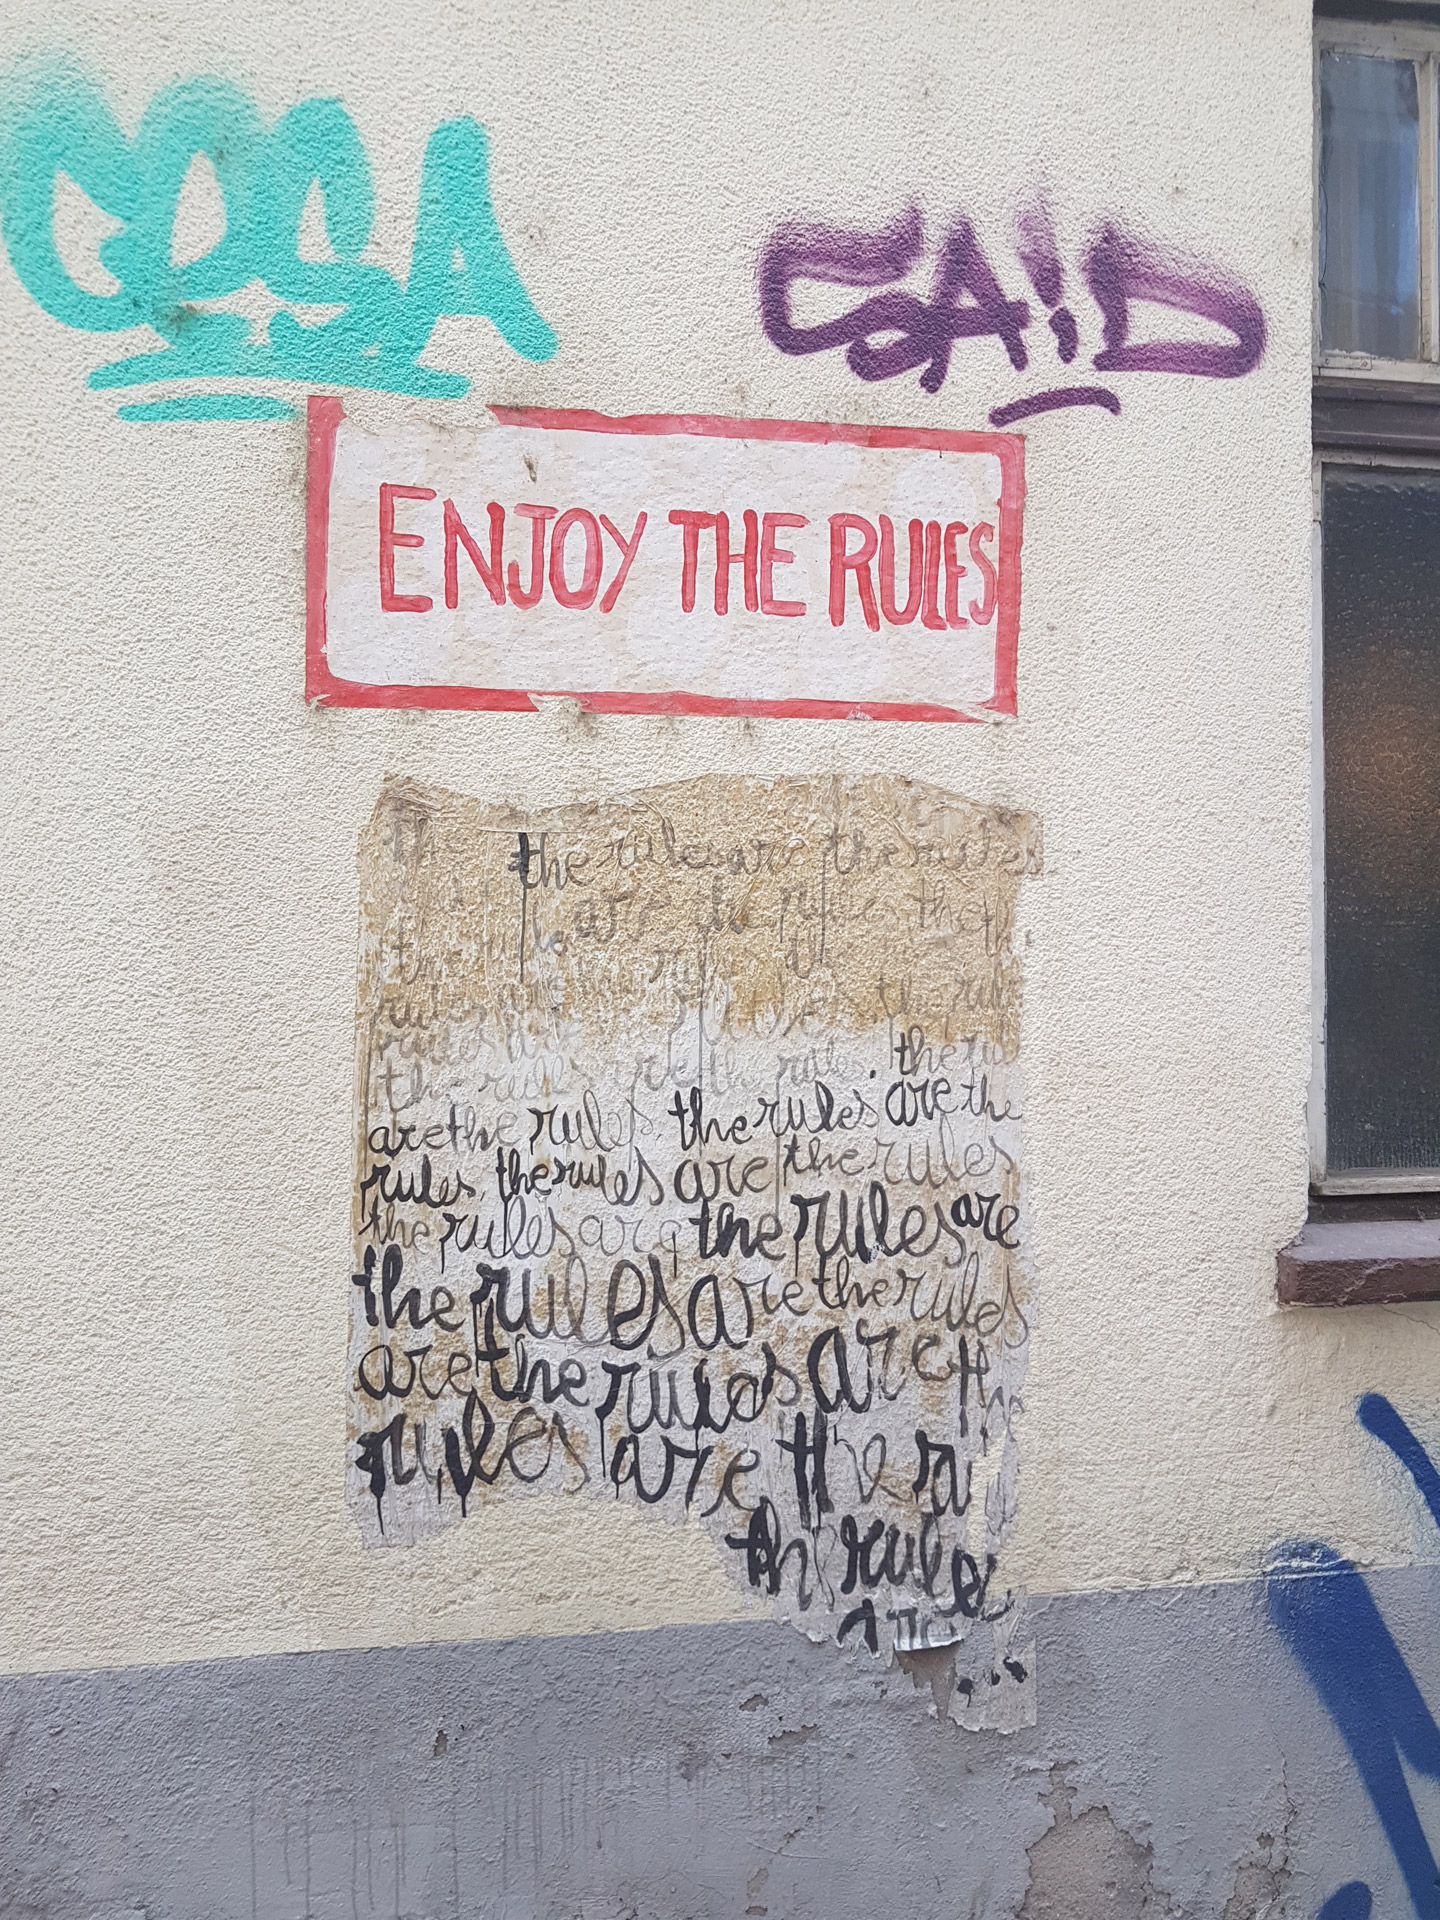 SAID
ENJOY THE RULES
the rules are the rules
are the rules the
the rules
rules are the rules
the rules are the rules. the ru
are the rules. the rules are the
rules. the rules are the rules
the rules are the rules are
the rules are the rules
are the rules are the
rules are the ru
the rules
are
...